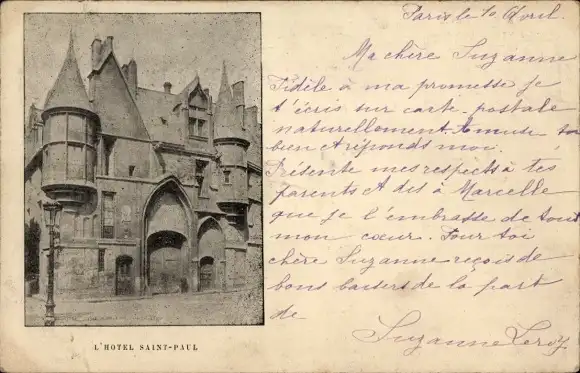 Paris le 10 Avril.
Ma chère Suzanne
Fidèle à ma promesse je
t'écris sur carte-postale
naturellement. t'amuse tu
bien et réponds moi.
Présente mes respects à tes
parents et dis à Marcelle
que je l'embrasse de tout
mon cœur. Pour toi
chère Suzanne reçois de
bons baisers de la part
de
Suzanne Leroy
L'HOTEL SAINT-PAUL